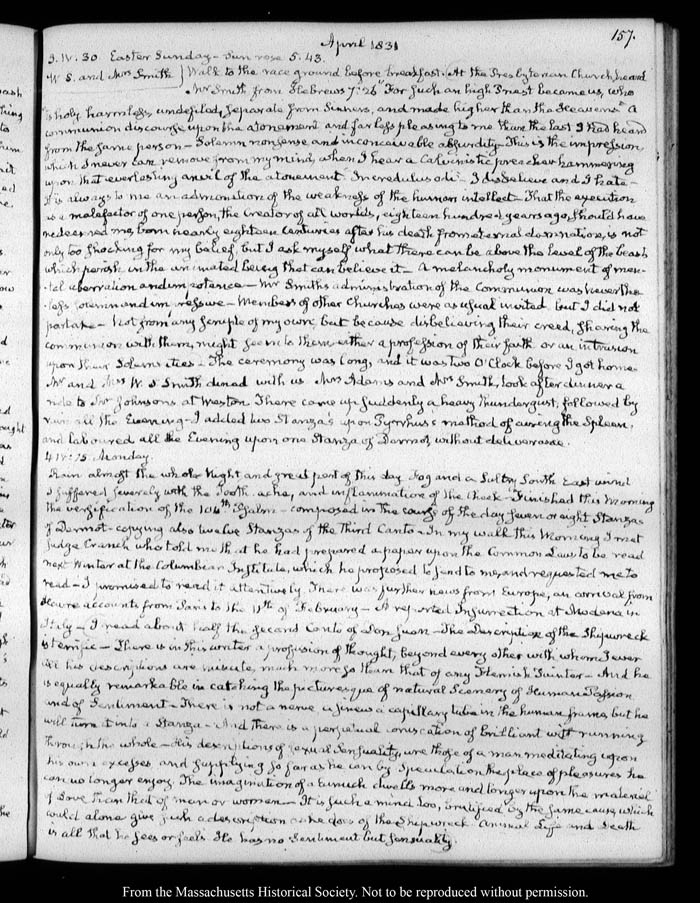 157.
April 1831
3. IV. 30 Easter Sunday - Sun rose 5.43.
W S. and Mrs Smith } Walk to the race ground before breakfast. At the Presbyterian Church heard
Mr Smith from Hebrews 7. 26 "For such an high Priest became us, who
is holy harmless, undefiled, separate from Sinners, and made higher than the Heavens" a
communion discourse upon the atonement and far less pleasing to me than the last I had heard
from the same person - Solemn nonsense and inconceivable absurdity - This is the impression
which I never can remove from my mind, when I hear a Calvinistic preacher hammering
upon that everlasting anvil of the atonement. Incredulus odi - I disbelieve and I hate -
It is always to me an admonition of the weakness of the human intellect - That the execution
as a malefactor of one person, the Creator of all worlds, eighteen hundred years ago, should have
redeemed me, born nearly eighteen centuries after his death from eternal damnation, is not
only too shocking for my belief, but I ask myself what there can be above the level of the beasts
which perish in the animated being that can believe it - A melancholy monument of men-
tal aberration and impotence - Mr Smith's administration of the Communion was neverthe-
less solemn and impressive - Members of other Churches were as usual invited but I did not
partake - Not from any scruple of my own, but because disbelieving their creed, sharing the
communion with them, might seem to them either a profession of their faith or an intrusion
upon their Solemnities - The ceremony was long, and it was two O'Clock before I got home.
Mr and Mrs W S Smith dined with us Mrs Adams and Mrs Smith, took after dinner a
ride to Mr Johnson's at Weston. There came up suddenly a heavy thundergust, followed by
rain all the Evening - I added two Stanza's upon Pyrrhus's method of curing the Spleen,
and laboured all the Evening upon one Stanza of Dermot, without deliverance.
4. IV: 15 Monday.
Rain almost the whole Night and great part of this day Fog and a Sultry South East wind
I suffered severely with the Tooth-ache, and inflammation of the Cheek - Finished this Morning
the versification of the 104th Psalm - composed in the course of the day seven or eight Stanzas
of Dermot - copying also twelve Stanzas of the Third Canto - In my walk this Morning I met
Judge Cranch who told me that he had prepared a paper upon the Common Law to be read
next Winter at the Columbian Institute, which he proposed to send to me, and requested me to
read - I promised to read it attentively. There was further news from Europe, an arrival from
Havre accounts from Paris to the of February - A reported Insurrection at Modena in
Italy - I read about half the second Canto of Don Juan - The Description of the Shipwreck
is terrific - There is in this writer a profusion of thought, beyond every other with whom I ever
All his descriptions are minute, much more so than that of any Flemish Painter - And he
is equally remarkable in catching the picturesque of natural Scenery of Human Passion
and of Sentiment - There is not a nerve a sinew a capillary tube in the human frame but he
will turn it into a Stanza - And there is a perpetual coruscation of brilliant wit running
through the whole - His descriptions of sexual sensuality, are those of a man meditating upon
his own excesses and supplying so far as he can by speculation the place of pleasures he
can no longer enjoy. The imagination of a Eunuch dwells more and longer upon the material
of Love than that of man or woman - It is such a mind too, brutified by the same cause, which
could alone give such a description as he does of the Shipwreck - Animal Life and Death
is all that he sees or feels He has no Sentiment but Sensuality.
From the Massachusetts Historical Society. Not to be reproduced without permission.